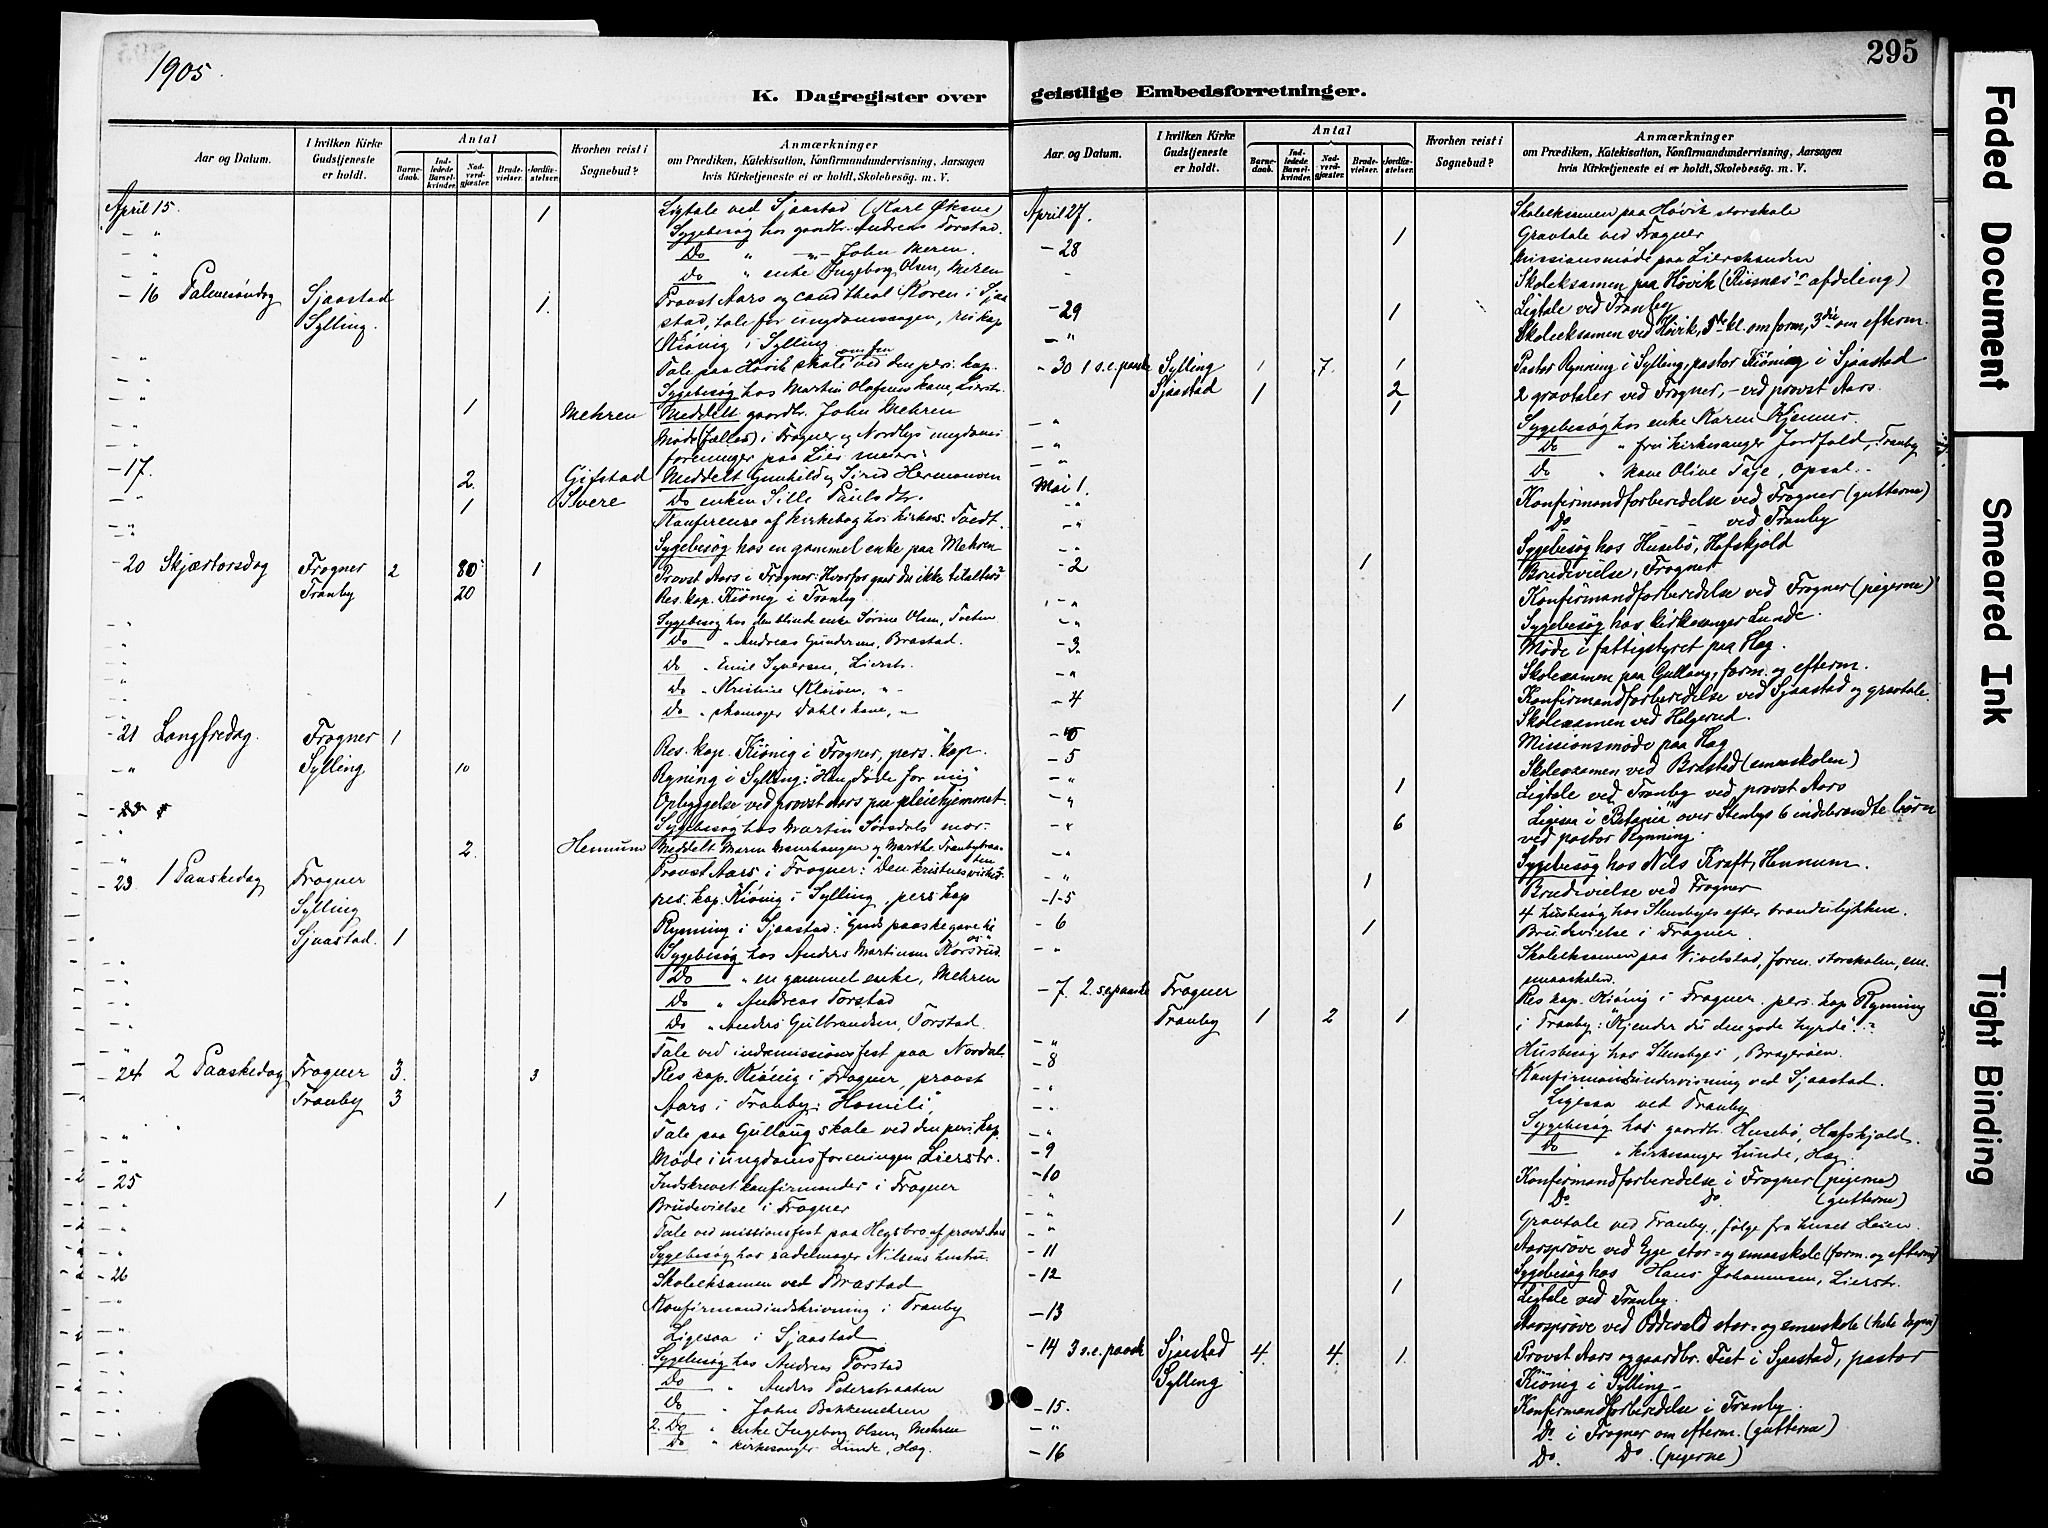 1905
295
K. Dagregister over
geistlige Embedsforretninger.
Aar og Datum.
I hvilken Kirke Gudstjeneste er holdt.
Antal
Barnedaab.
Indledede Barselkvinder.
Nadverdgjæster.
Brudevielser.
Jordfæstelser.
Hvorhen reist i Sognebud?
Anmærkninger
om Prædiken, Katekisation, Konfirmandundervisning, Aarsagen
hvis Kirketjeneste ei er holdt, Skolebesøg. m. V.
April 15. 1 Ligtale ved Sjaastad (Karl Øksne)
- " Sygebesøg hos gaardbr. Andreas Torstad.
- " Do " -"- John Meren.
- " Do " enke Ingeborg Olsen, Meren
- 16 Palmesøndag Sjaastad 1. Provst Aars og cand theol Koren i Sjaa
Sylling. stad, tale for ungdomssagen, res kap
Kiønig i Sylling
" Tale paa Høvik skole ved den pers. kap.
" Sygebesøg hos Martin Olafsens kone, Lierstr.
" 1 Mehren Meddelt gaardbr. John Mehren
Møde (fælles) i Frogner og Nordlys ungdoms
foreninger paa Lier meieri
- 17. 2. Gifstad Meddelt Gunhild og Sirid Hermansen
- " 1 Svere Do enken Sille Paulsdtr.
- " Konference af kirkebog hos kirkes. Toedt.
Sygebesøg hos en gammel enke paa Mehren
- 20 Skjærtorsdag Frogner 2 80 1 Provst Aars i Frogner: Hvorfor gaar du ikke til alters
Tranby 20 Res. kap. Kiønig i Tranby
" Sygebesøg hos den blinde enke Sørine Olsen, Tveten
" Do " Andreas Gundersen, Brastad.
" Do " Emil Syversen, Lierstr.
" Do " Kristine Kleiven, " -
" Do " skomager Dahls kone, "
- 21 Langfredag. Frogner 1 Res. kap. Kiønig i Frogner, pers. kap.
- " Sylling 10 Ryning i Sylling: "Han døde for mig"
Opbyggelse ved provst Aars paa pleiehjemmet.
Sygebesøg hos Martin Sørsdals mor.
" 2. Hennum Meddelt Maren Maurhaugen og Marthe Tranbybraaten
- 23. 1 Paaskedag Frogner Provst Aars i Frogner: "Den kristnes
Sylling res. kap. Kiønig i Sylling, pers kap
Sjaastad. 1 Rynning i Sjaastad: "Guds paaskegave til os"
" Sygebesøg hos Anders Martinsen Korsrud.
" Do " en gammel enke, Mehren
" Do " Andreas Torstad
" Do " Anders Gulbrandsen, Torstad.
" Tale ved indremissionsfest paa Nordal
- 24 2 Paaskedag Frogner 3. 3 Res kap. Kiønig i Frogner, provst
Tranby 3 Aars i Tranby: "Homili",
" Tale paa Gullaug skole ved den pers. kap.
- " Møde i ungdomsforeningen Lierstr.
- 25 Indskrevet konfirmander i Frogner
" 1 Brudevielse i Frogner
- " Tale ved missionsfest paa Hegsbro af provst Aars
- " Sygebesøg hos sadelmager Nilsens hustru.
- 26 Skoleeksamen ved Brastad
- " Konfirmandindskrivning i Tranby
- " Ligesaa i Sjaastad
- " Sygebesøg hos Andreas Torstad
- " Do " Anders Peterstraaten
- " Do " John Bakkemehren
- " 2. Do " enke Ingeborg Olsen, Mehren
- " Do " kirkesanger Lunde, Hæg.
April 27. Skoleeksamen paa Høvik storskole
1 Gravtale ved Frogner
- 28 Missionsmøde paa Lierskanden
- Skoleksamen paa Høvik (Riisnæs's afdeling)
- 29 1 Ligtale ved Tranby
- " Skoleeksamen ved Høvik, 5te kl. om form, 3die om efterm.
- 30 1 s.e. paaske Sylling 1 7. 1 Pastor Rynning i Sylling, pastor Kiønig i Sjaastad
Sjaastad 1 2 2 gravtaler ved Frogner, - ved provst Aars.
- " 1 Sygebesøg hos enke Karen Kjenner
- " Do " fru kirkesanger Jordfald, Tranby
- " Do " kone Olive Taje, Opsal.
Mai 1. Konfirmandforberedelse ved Frogner (gutterne)
- " Do ved Tranby
- " Sygebesøg hos Husebø, Hafskjold
- 2 1 Brudevielse, Frogner
- " Konfirmandforberedelse ved Frogner (pigerne)
- " Sygebesøg hos kirkesanger Lunde
- 3. Møde i fattigstyret paa Hæg.
- " Skoleexamen paa Gullaug, form. og efterm.
- 4 1 Konfirmandforberedelse ved Sjaastad og gravtale.
Skolexamen ved Helgerud.
Missionsmøde paa Hæg
- 5 Skolexamen ved Brastad (smaaskolen)
- " 1 Ligtale ved Tranby ved provst Aars
- " 6 Ligesaa i "Betania" over Stenbys 6 indebrændte børn
ved pastor Rynning
- " Sygebesøg hos Nils Kraft, Hennum.
- " 1 Brudevielse ved Frogner
-1-5 4 husbesøg hos Stensbyes efter brandulykken.
- 6 1 Brudevielse i Frogner
- " Skoleeksamen paa Vivelstad, form. storskolen, em.
smaaskolen.
- 7. 2. s e paaske Frogner Res kap. Kiønig i Frogner. pers. kap Rynning
Tranby 1 2 1 i Tranby: "Kjender du den gode hyrde".
- " Husbesøg hos Stensbyes, Bragerøen.
- 8 Konfirmandundervisning ved Sjaastad.
- " Ligesaa ved Tranby
- " Sygebesøg hos gaardbr. Husebø, Hafskjold.
- " Do " kirkesanger Lunde, Hæg.
- 9 Konfirmandforberedelse i Frogner (pigerne)
- 10 Do Do (gutterne)
- " 1 Gravtale ved Tranby, følge fra huset Heien.
- " Aarsprøve ved Egge stor- og smaaskole (form. og efterm)
- 11 Sygebesøg hos Hans Johannesen, Lierstr.
- 12 1 Ligtale ved Tranby.
- 13 Aarsprøve ved Oddevald stor- og smaaskole (hele dagen)
- 14 3 s.e. paask Sjaastad 4. 4. 1. Provst Aars og gaardbr. Fest i Sjaastad, pastor
Sylling Kiønig i Sylling -
- 15. Konfirmandforberedelse i Tranby.
- " Do i Frogner om efterm. (gutterne)
- 16 Do. Do. (pigerne)
Faded Document
Smeared Ink
Tight Binding